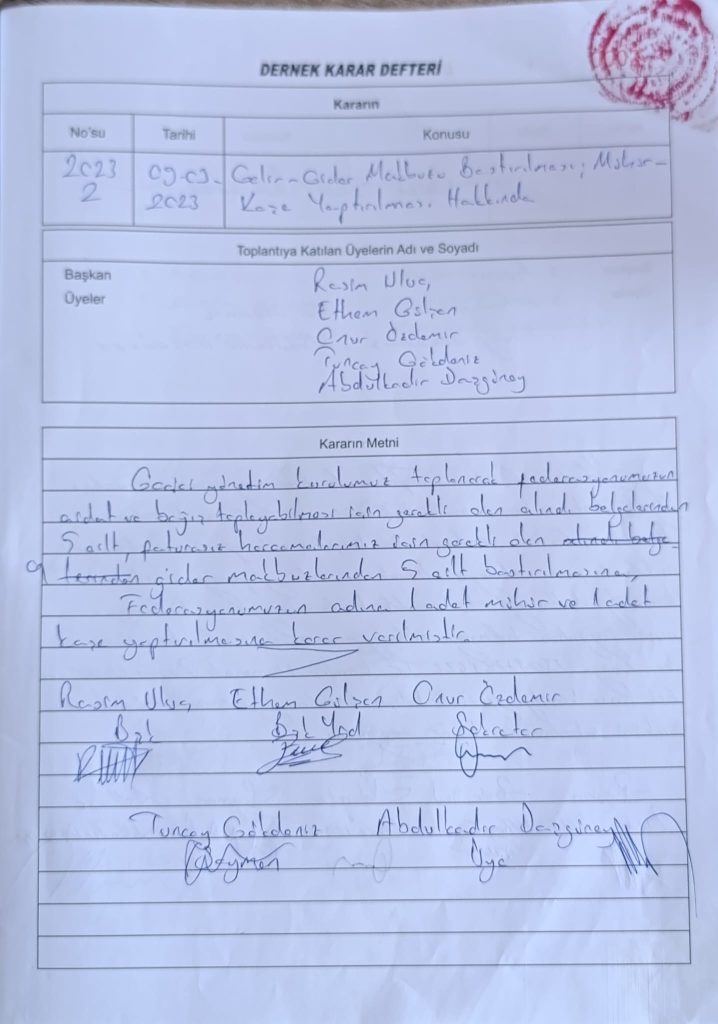 DERNEK KARAR DEFTERİ
Kararın
No'su Tarihi Konusu
2023 09-03- Gelir-Gider Makbuzu Bastırılması; Mühür-
2 2023 Kaşe Yaptırılması Hakkında
Toplantıya Katılan Üyelerin Adı ve Soyadı
Başkan Rasim Uluç
Üyeler Ethem Gülşen
Onur Özdemir
Tuncay Gökdeniz
Abdulkadir Dazgüney
Kararın Metni
Geçici yönetim kurulumuz toplanarak federasyonumuzun
aidat ve bağış toplayabilmesi için gerekli olan alındı belgelerinden
5 cilt, faturasız harcamalarımız için gerekli olan alındı belge
lerinden gider makbuzlarından 5 cilt bastırılmasına,
Federasyonumuzun adına 1 adet mühür ve 1 adet
kaşe yaptırılmasına karar verilmiştir.
Rasim Uluç Ethem Gülşen Onur Özdemir
Bşk Bşk Yrd Sekreter
Tuncay Gökdeniz Abdulkadir Dazgüney
Sayman Üye